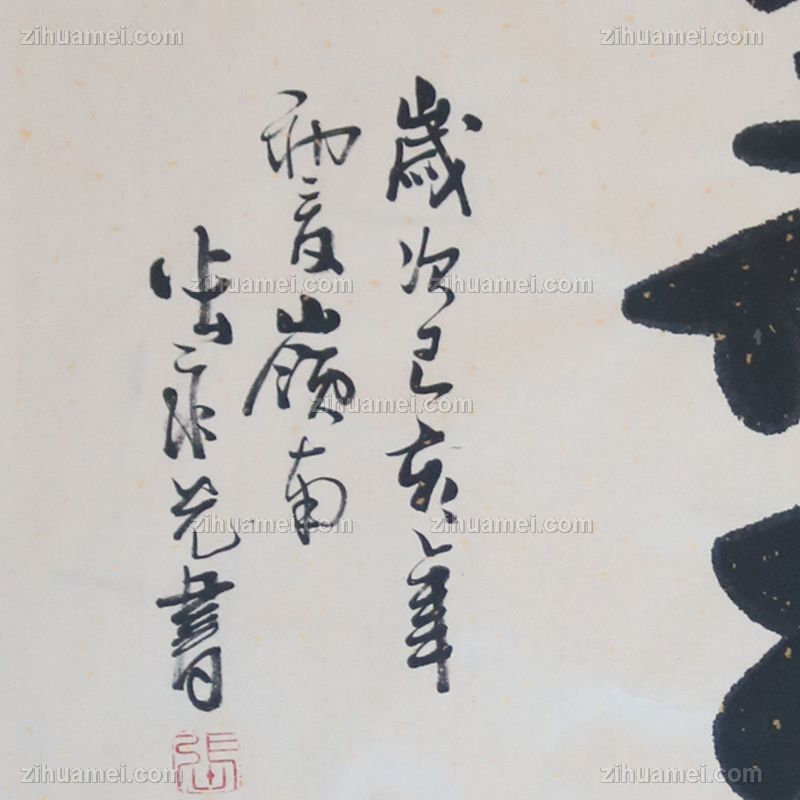 歲次己亥年
初夏嶺南
宗光書
張
zihuamei.com
zihuamei.com
zihuamei.com
zihuamei.com
zihuamei.com
zihuamei.com
zihuamei.com
zihuamei.com
zihuamei.com
zihuamei.com
zihuamei.com